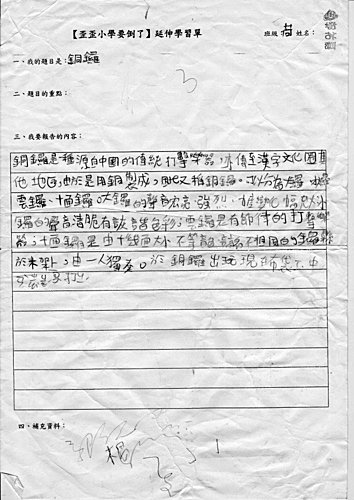 【歪歪小學要倒了】延伸學習單
班級 姓名:
一、我的題目是:銅鑼
二、題目的重點:
三、我要報告的內容:
銅鑼是一種源自中國的傳統打擊樂器,亦傳至漢字文化圈其
他地區,由於是用銅製成,因此又稱銅鑼。可分為大鑼、小鑼
雲鑼、十面鑼。大鑼的聲音宏亮、強烈
鑼的聲音清脆有詼諧色彩;雲鑼是有節律的打擊樂
器;十面鑼是由十幾面大小不等、音高不相同的
於木架上,由一人獨奏。於銅鑼出現
四、補充資料: